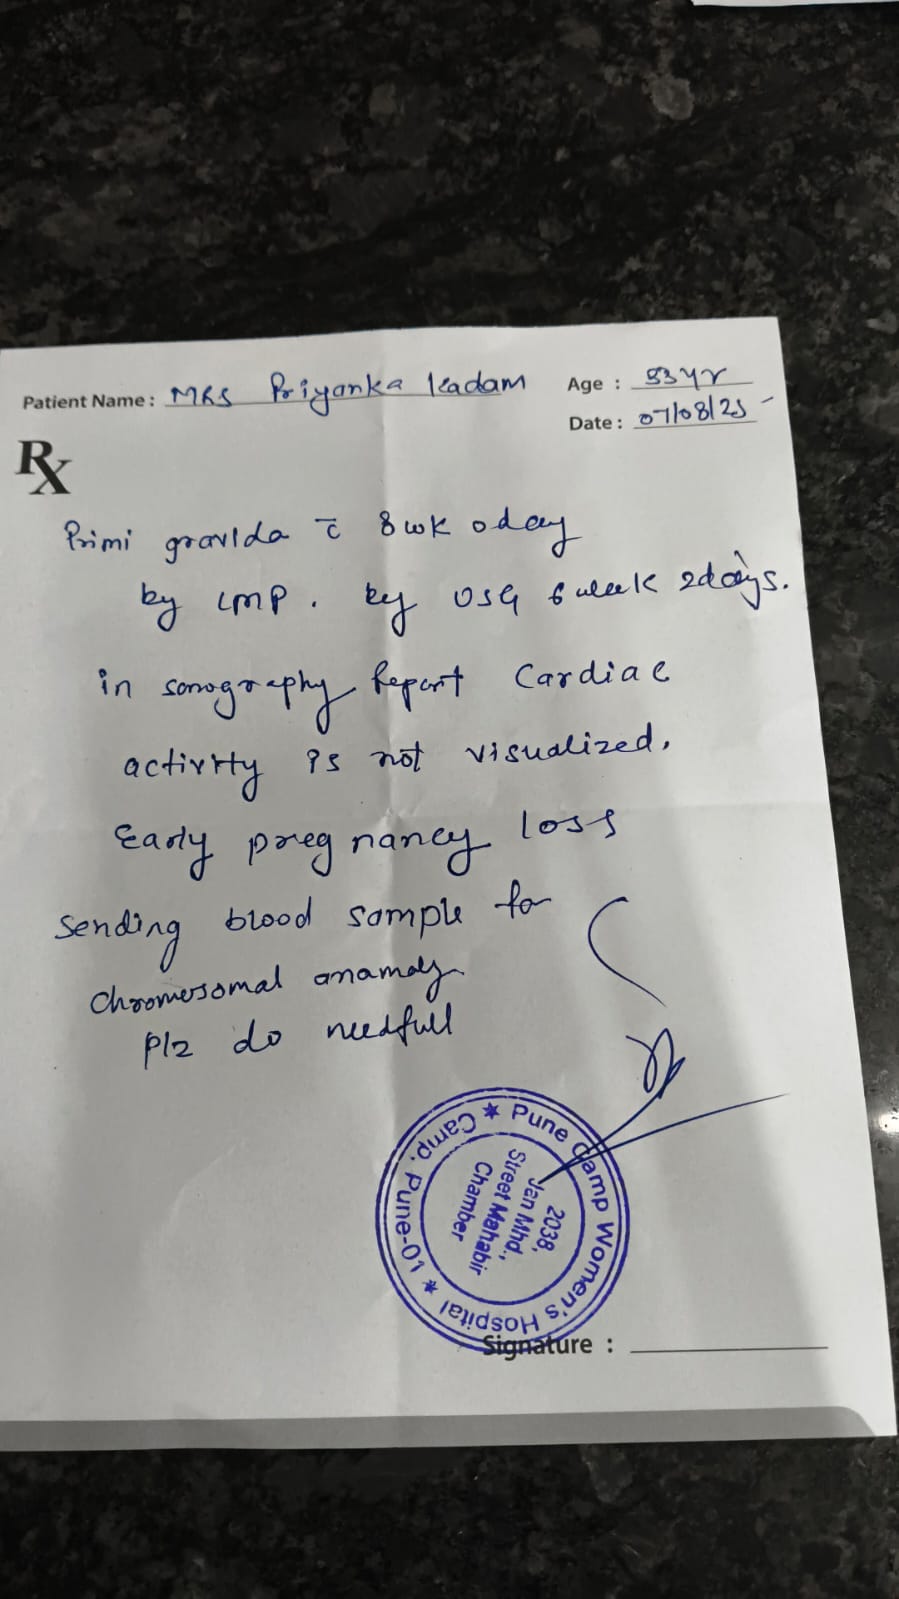 Patient Name : MRS Priyanka Kadam
Age : 33yr
Date : 07/08/25
Rx
Primi gravida c̄ 8wk 0day
by LMP. by USG 6 week 2days.
in sonography Report Cardiac
activity is not visualized.
Early pregnancy loss
Sending blood sample for
Chromosomal anamoly
Plz do needfull
★ Pune Camp Women's Hospital ★ Camp, Pune-01
2038,
Jan Mhd.,
Street Mahabir
Chamber
Signature :